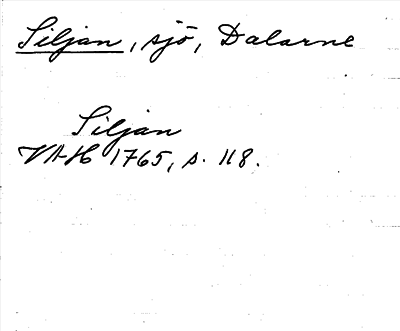 Siljan, sjö, Dalarne
Siljan
VAH 1765, s. 118.